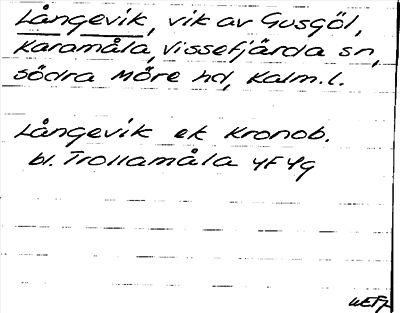 Långevik, vik av Gusgöl,
Karamåla, Vissefjärda sn,
södra Möre hd, Kalm.l.
Långevik ek Kronob.
bl. Trollamåla 4F4g